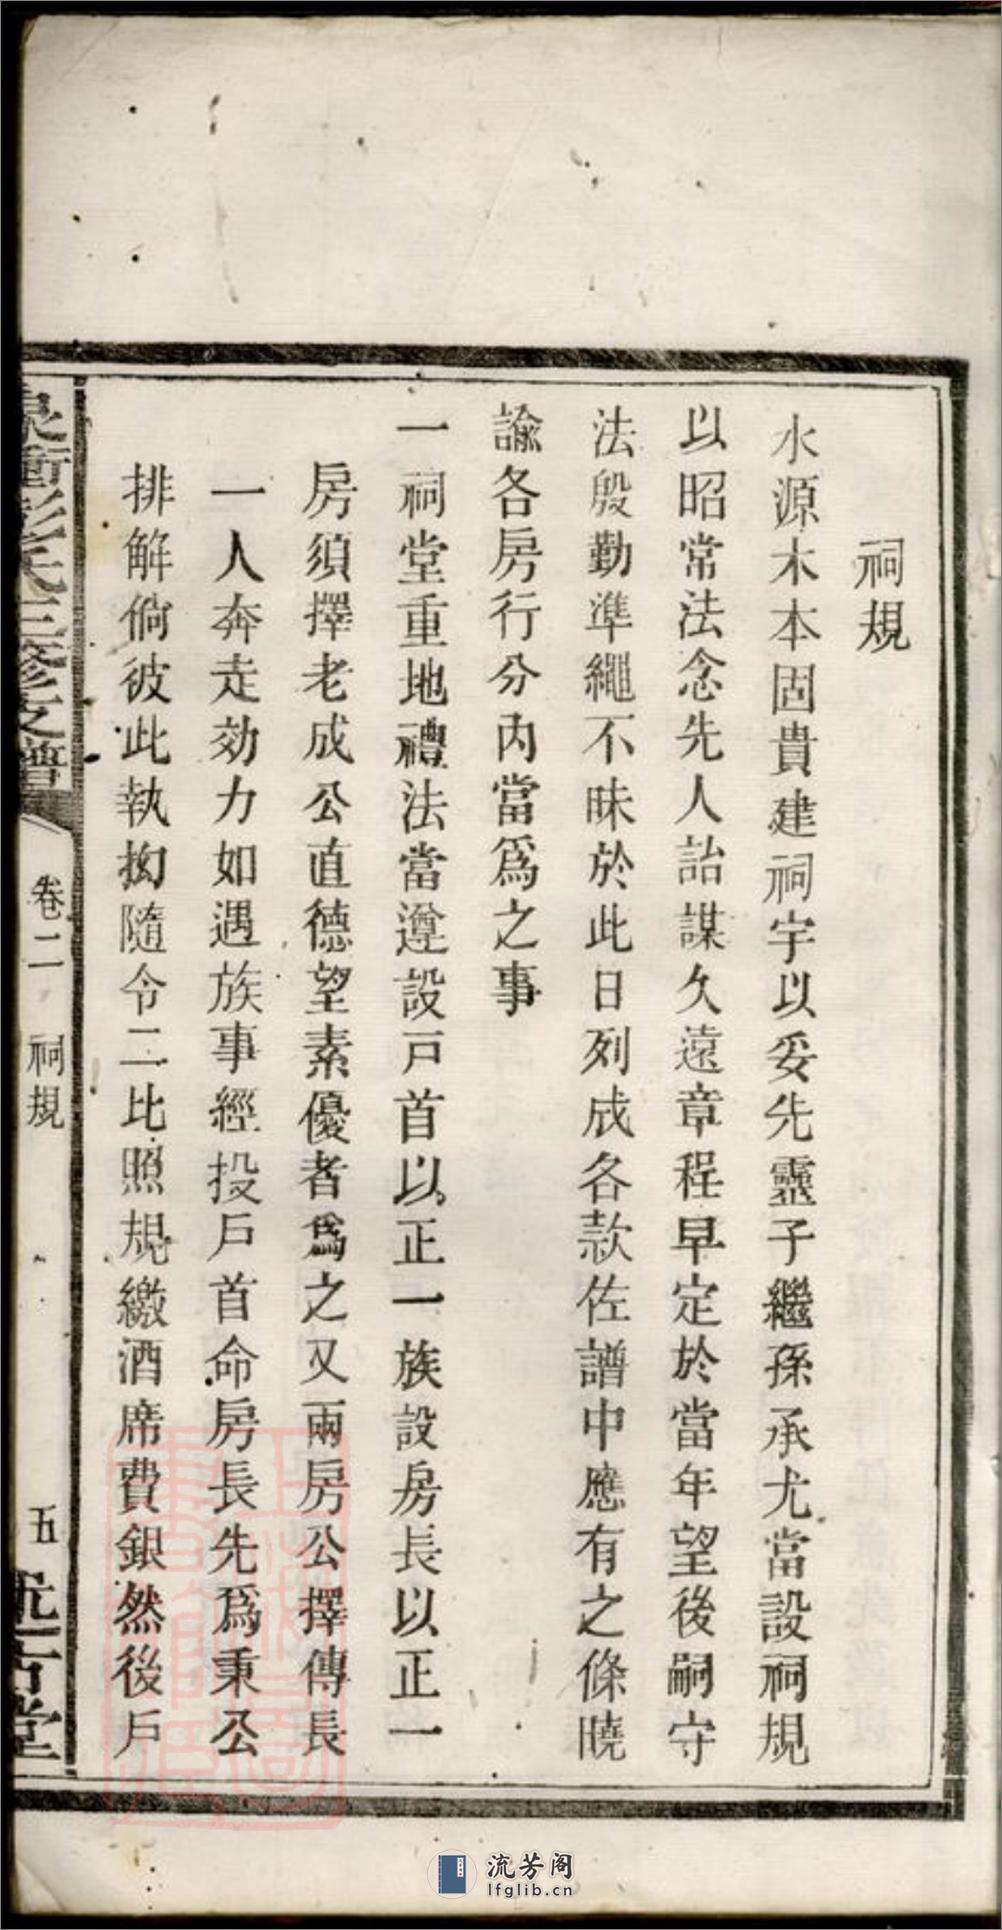 祠規
水源木本固貴建祠宇以妥先靈子繼孫承尤當設祠規
以昭常法念先人詒謀久遠章程早定於當年望後嗣守
法殷勤準繩不昧於此日列成各款佐譜中應有之條曉
諭各房行分內當爲之事
一祠堂重地禮法當遵設戸首以正一族設房長以正一
房須擇老成公直德望素優者爲之又兩房公擇傳長
一人奔走効力如遇族事經投戸首命房長先爲秉公
排解倘彼此執拗隨令二比照規繳酒席費銀然後戸
泉衝彭氏三修支譜
卷二 祠規
五
述古堂
流芳阁
lfglib.cn